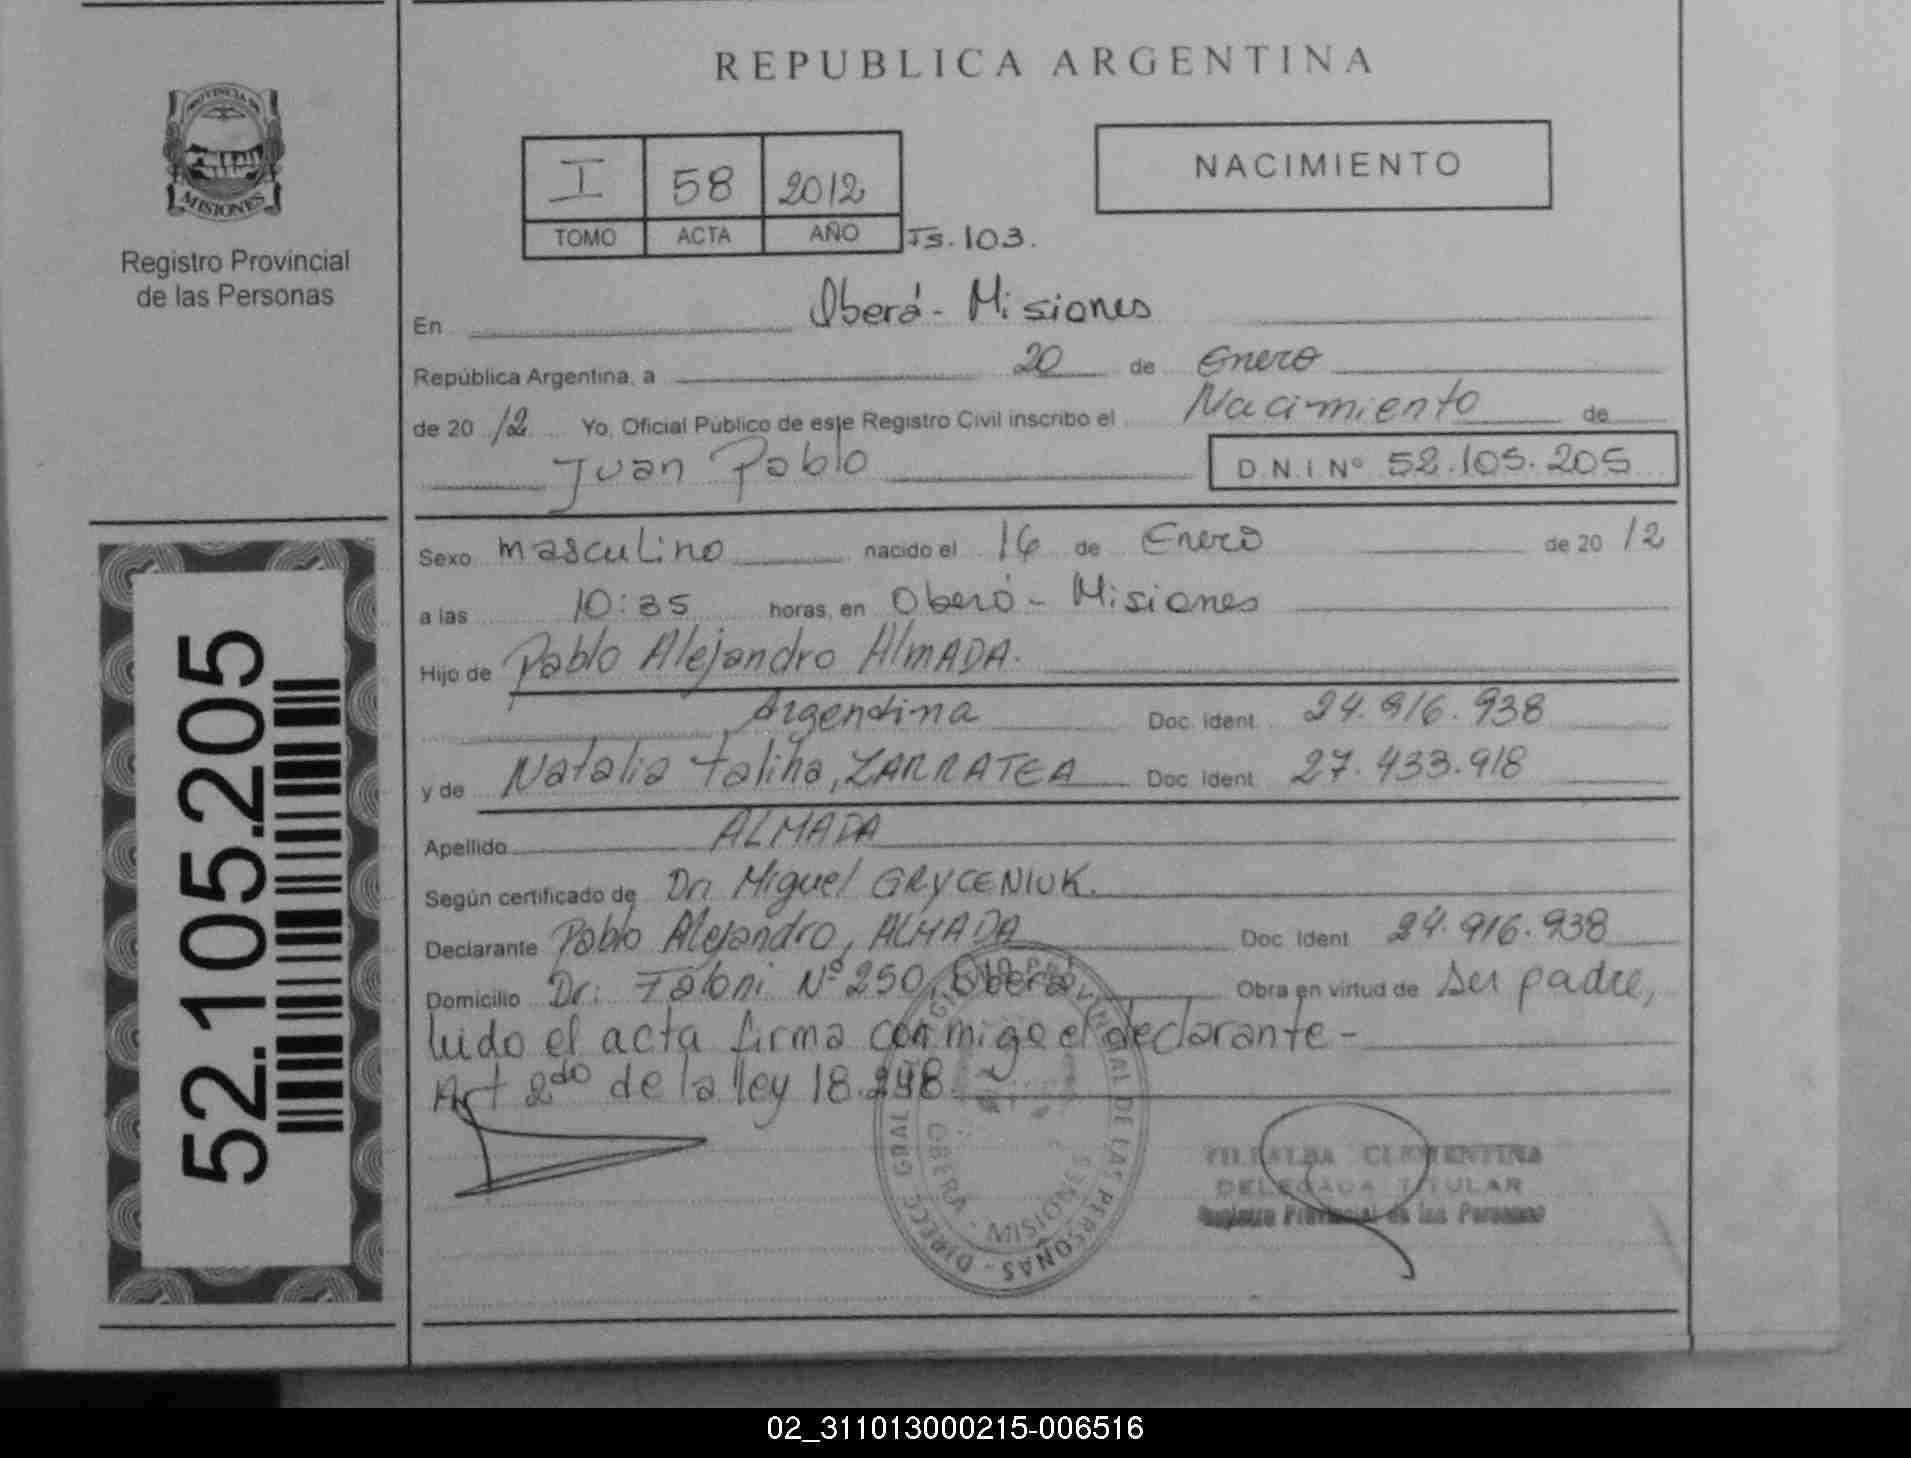 REPUBLICA ARGENTINA
PROVINCIA DE
MISIONES
Registro Provincial
de las Personas
I 58 2012
TOMO ACTA AÑO Fs. 103.
NACIMIENTO
En Oberá - Misiones
República Argentina, a 20 de Enero
de 2012 Yo, Oficial Público de este Registro Civil inscribo el Nacimiento de
Juan Pablo D.N.I Nº 52.105.205
Sexo masculino nacido el 16 de Enero de 2012
a las 10:35 horas, en Oberá - Misiones
Hijo de Pablo Alejandro AlmADA.
Argentina Doc. Ident. 24.916.938
y de Natalia Taliha, ZARRATEA Doc. Ident. 27.433.918
Apellido ALMADA
Según certificado de Dr. Miguel GRYCENIUK.
Declarante Pablo Alejandro, ALMADA Doc. Ident. 24.916.938
Domicilio Dr. Nº 250, Oberá Obra en virtud de ser padre,
el acta firma conmigo el declarante -
Art 2do de la ley 18.248.
DIRECC GRAL REGISTRO PROVINCIAL DE LAS PERSONAS
OBERA - MISIONES
VILLALBA CLEMENTINA
DELEGADA TITULAR
Registro Provincial de las Personas
52.105.205
02_311013000215-006516